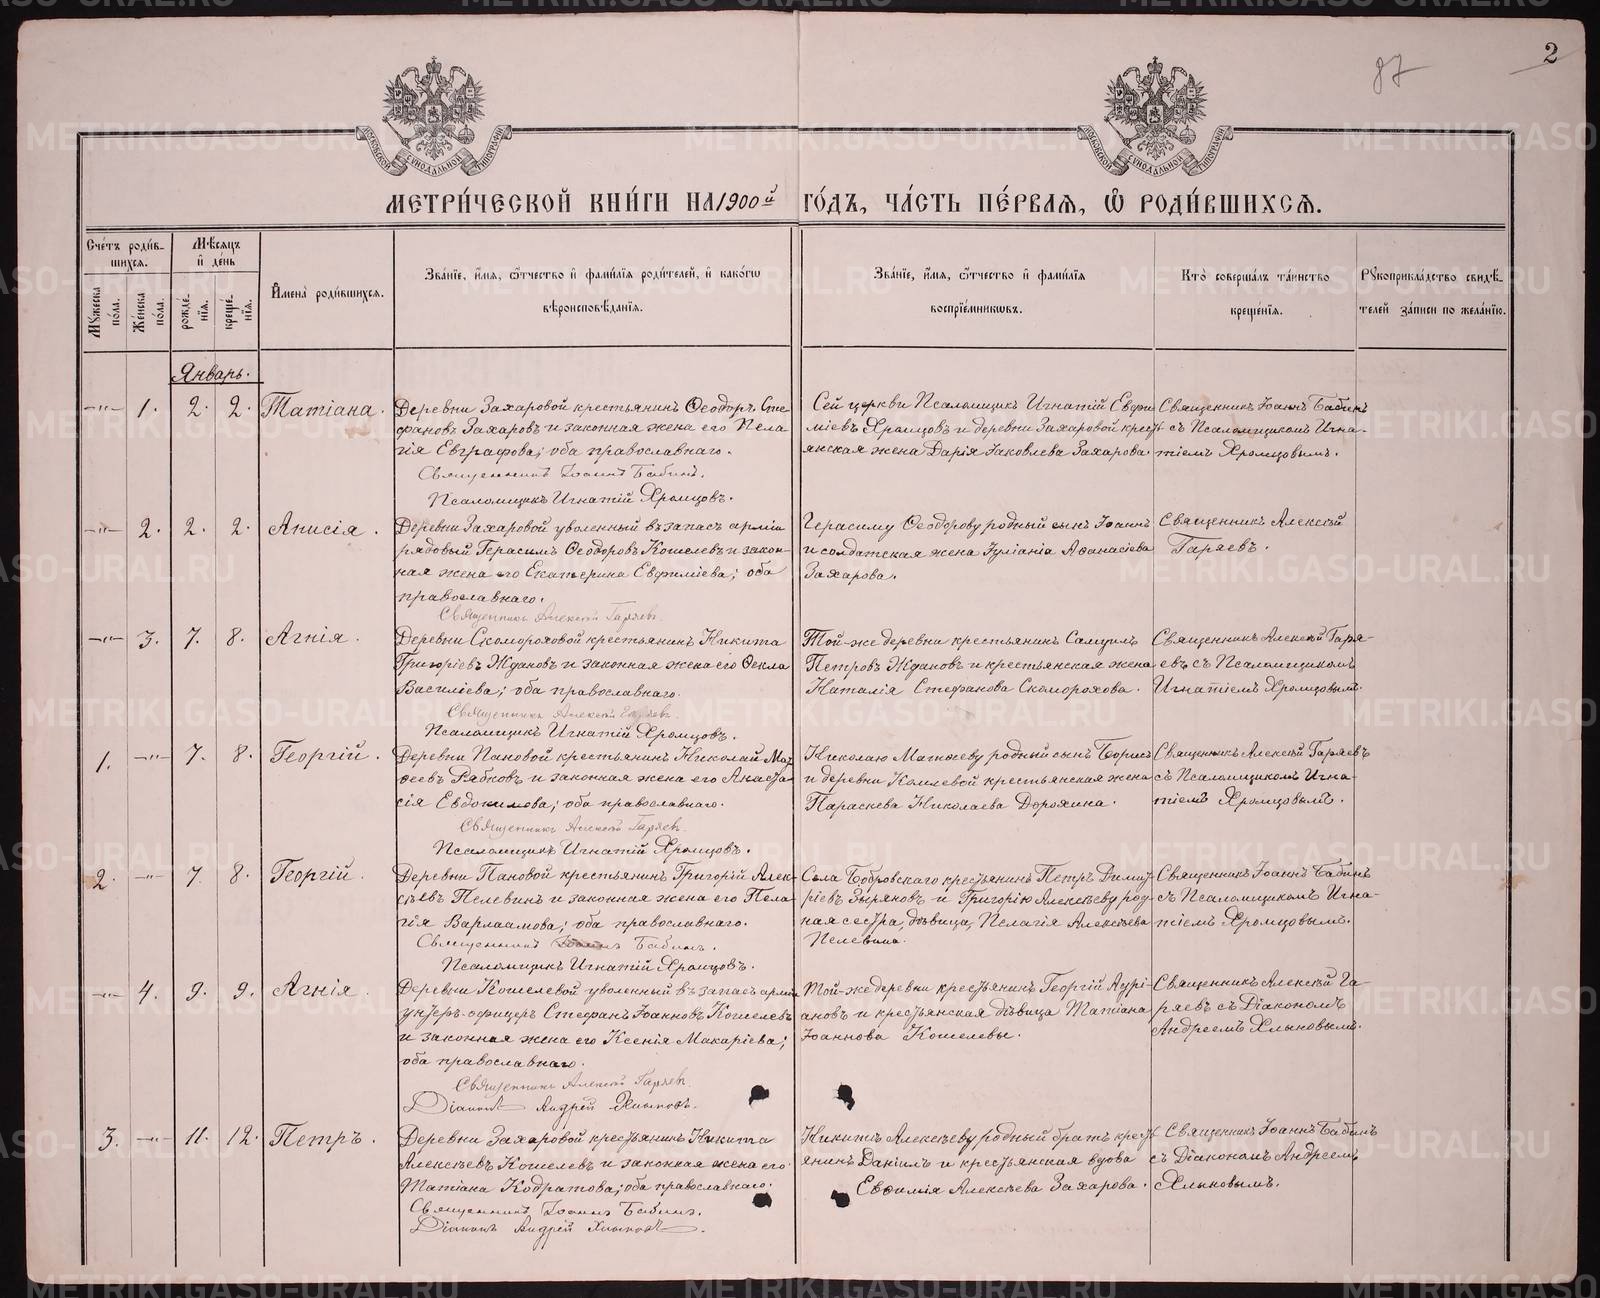 2
87
МЕТРИ́ЧЕСКОЙ КНИ́ГИ НА 1900й ГО́ДЪ, ЧА́СТЬ ПЕ́РВАЯ, Ѡ҆ РОДИ́ВШИХСѦ.
Сче́тъ роди́в-
шихсѧ.
Мꙋ́жеска по́ла.
Же́нска по́ла.
Мѣ́сѧцъ и҆ де́нь
рожде́-нїѧ.
креще́-нїѧ.
И҆мена̀ роди́вшихсѧ.
Зва́нїе, и҆́мѧ, ѻ҆́тчество и҆ фами́лїѧ роди́телей, и҆ како́гѡ
вѣроисповѣ́данїѧ.
Зва́нїе, и҆́мѧ, ѻ҆́тчество и҆ фами́лїѧ
воспрїе́мникѡвъ.
Кто̀ соверша́лъ та́инство
креще́нїѧ.
Рꙋкоприкла́дство свидѣ́-
телей за́писи по жела́нїю.
Январь.
-"- 1. 2. 2. Татіана.
Деревни Захаровой крестьянинъ Ѳеодоръ Сте
фановъ Захаровъ и законная жена его Пела
гія Евграфова; оба православнаго.
Священникъ Іоаннъ Бабинъ.
Псаломщикъ Игнатій Хромцовъ.
Сей церкви Псаломщикъ Игнатій Евфи
міевъ Хромцовъ и деревни Захаровой крест-
янская жена Дарія Іаковлева Захарова.
Священникъ Іоаннъ Бабинъ
съ Псаломщикомъ Игна-
тіемъ Хромцовымъ.
-"- 2. 2. 2. Анисія.
Деревни Захаровой уволенный въ запасъ арміи
рядовый Герасимъ Ѳеодоровъ Кошелевъ и закон-
ная жена его Екатерина Евфиміева; оба
православнаго.
Священникъ Алексій Гаряевъ.
Герасиму Ѳеодорову родный сынъ Іоаннъ
и солдатская жена Іуліанія Аѳанасіева
Захарова.
Священникъ Алексій
Гаряевъ.
-"- 3. 7. 8. Агнія.
Деревни Скомороховой крестьянинъ Никита
Григоріевъ Ждановъ и законная жена его Ѳекла
Василіева; оба православнаго.
Священникъ Алексій Гаряевъ.
Псаломщикъ Игнатій Хромцовъ.
Той-же деревни крестьянинъ Самуилъ
Петровъ Ждановъ и крестьянская жена
Наталія Стефанова Скоморохова.
Священникъ Алексій Гаря-
евъ съ Псаломщикомъ
Игнатіемъ Хромцовымъ.
1. -"- 7. 8. Георгій.
Деревни Пановой крестьянинъ Николай Мат
ѳеевъ Рябковъ и законная жена его Анаста
сія Евдокимова; оба православнаго.
Священникъ Алексій Гаряевъ.
Псаломщикъ Игнатій Хромцовъ.
Николаю Матѳееву родный сынъ Борисъ
и деревни крестьянская жена
Параскева Николаева Дорохина.
Священникъ Алексій Гаряевъ
съ Псаломщикомъ Игна-
тіемъ Хромцовымъ.
2. -"- 7. 8. Георгій.
Деревни Пановой крестьянинъ Григорій Алек-
сѣевъ Пелевинъ и законная жена его Пела
гія Варлаамова; оба православнаго.
Священникъ Іоаннъ Бабинъ.
Псаломщикъ Игнатій Хромцовъ.
Села Бобровскаго крестьянинъ Петръ Димит-
ріевъ Зыряновъ и Григорію Алексѣеву род-
ная сестра, дѣвица, Пелагія Алексѣева
Пелевина.
Священникъ Іоаннъ Бабинъ
съ Псаломщикомъ Игна-
тіемъ Хромцовымъ.
-"- 4. 9. 9. Агнія.
Деревни Кошелевой уволенный въ запасъ арміи
унтеръ-офицеръ Стефанъ Іоанновъ Кошелевъ
и законная жена его Ксенія Макаріева;
оба православнаго.
Священникъ Алексій Гаряевъ.
Діаконъ Андрей Хлыновъ.
Той-же деревни крестьянинъ Георгій Аурі-
ановъ и крестьянская дѣвица Татіана
Іоаннова Кошелевы.
Священникъ Алексій Га-
ряевъ съ Діакономъ
Андреемъ Хлыновымъ.
3. -"- 11. 12. Петръ.
Деревни Захаровой крестьянинъ Никита
Алексѣевъ Кошелевъ и законная жена его
Татіана Кодратова; оба православнаго.
Священникъ Іоаннъ Бабинъ.
Діаконъ Андрей Хлыновъ.
Никитѣ Алексѣеву родный братъ крест-
янинъ Даніилъ и крестьянская вдова
Евѳимія Алексѣева Захарова.
Священникъ Іоаннъ Бабинъ
съ Діакономъ Андреемъ
Хлыновымъ.
METRIKI.GASO-URAL.RU